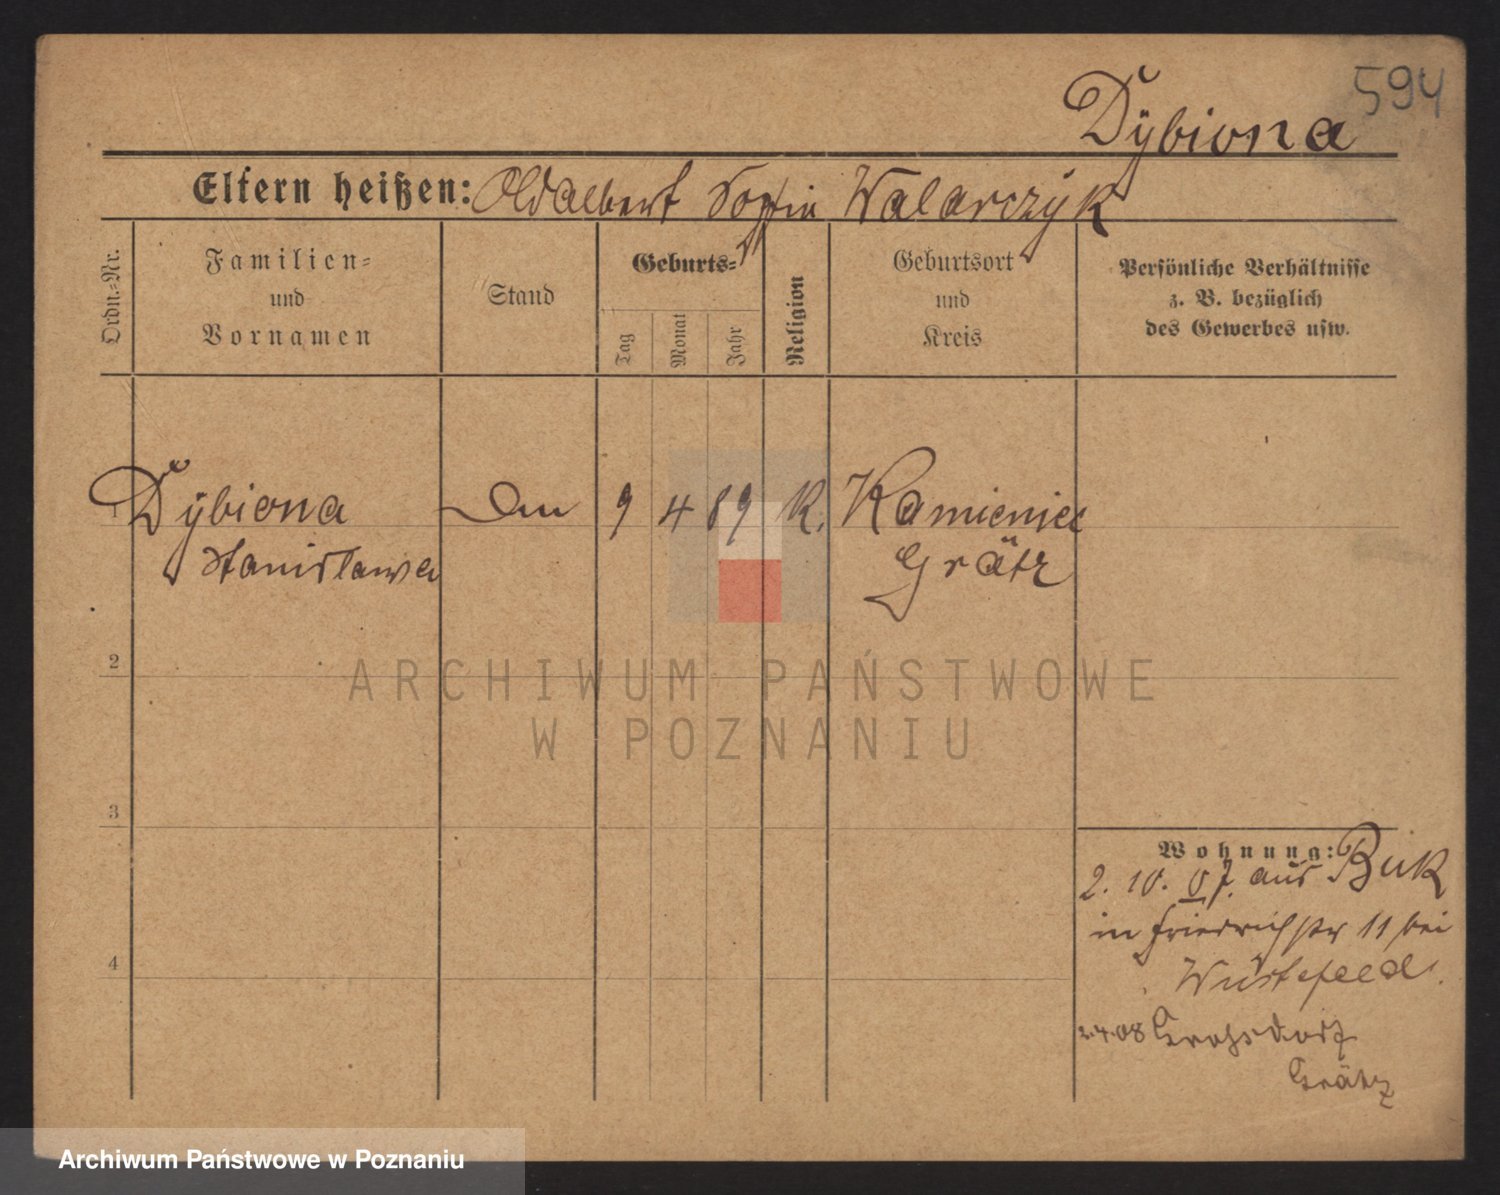 594
Dÿbiona
Eltern heißen: Adalbert Sophie Walarczÿk
Ordn.-Nr.
Familien-
und
Vornamen
Stand
Geburts-
Tag
Monat
Jahr
Religion
Geburtsort
und
Kreis
Persönliche Verhältnisse
z. B. bezüglich
des Gewerbes usw.
1 Dÿbiona 9 4 89 K. Kamieniec
Stanislawa Grätz
2
ARCHIWUM PAŃSTWOWE
W POZNANIU
3
Wohnung:
2. 10. 07. aus Buk
in Friedrichstr 11 bei
Wüstefeld.
4
2.4.08 Grossdorf
Grätz
Archiwum Państwowe w Poznaniu